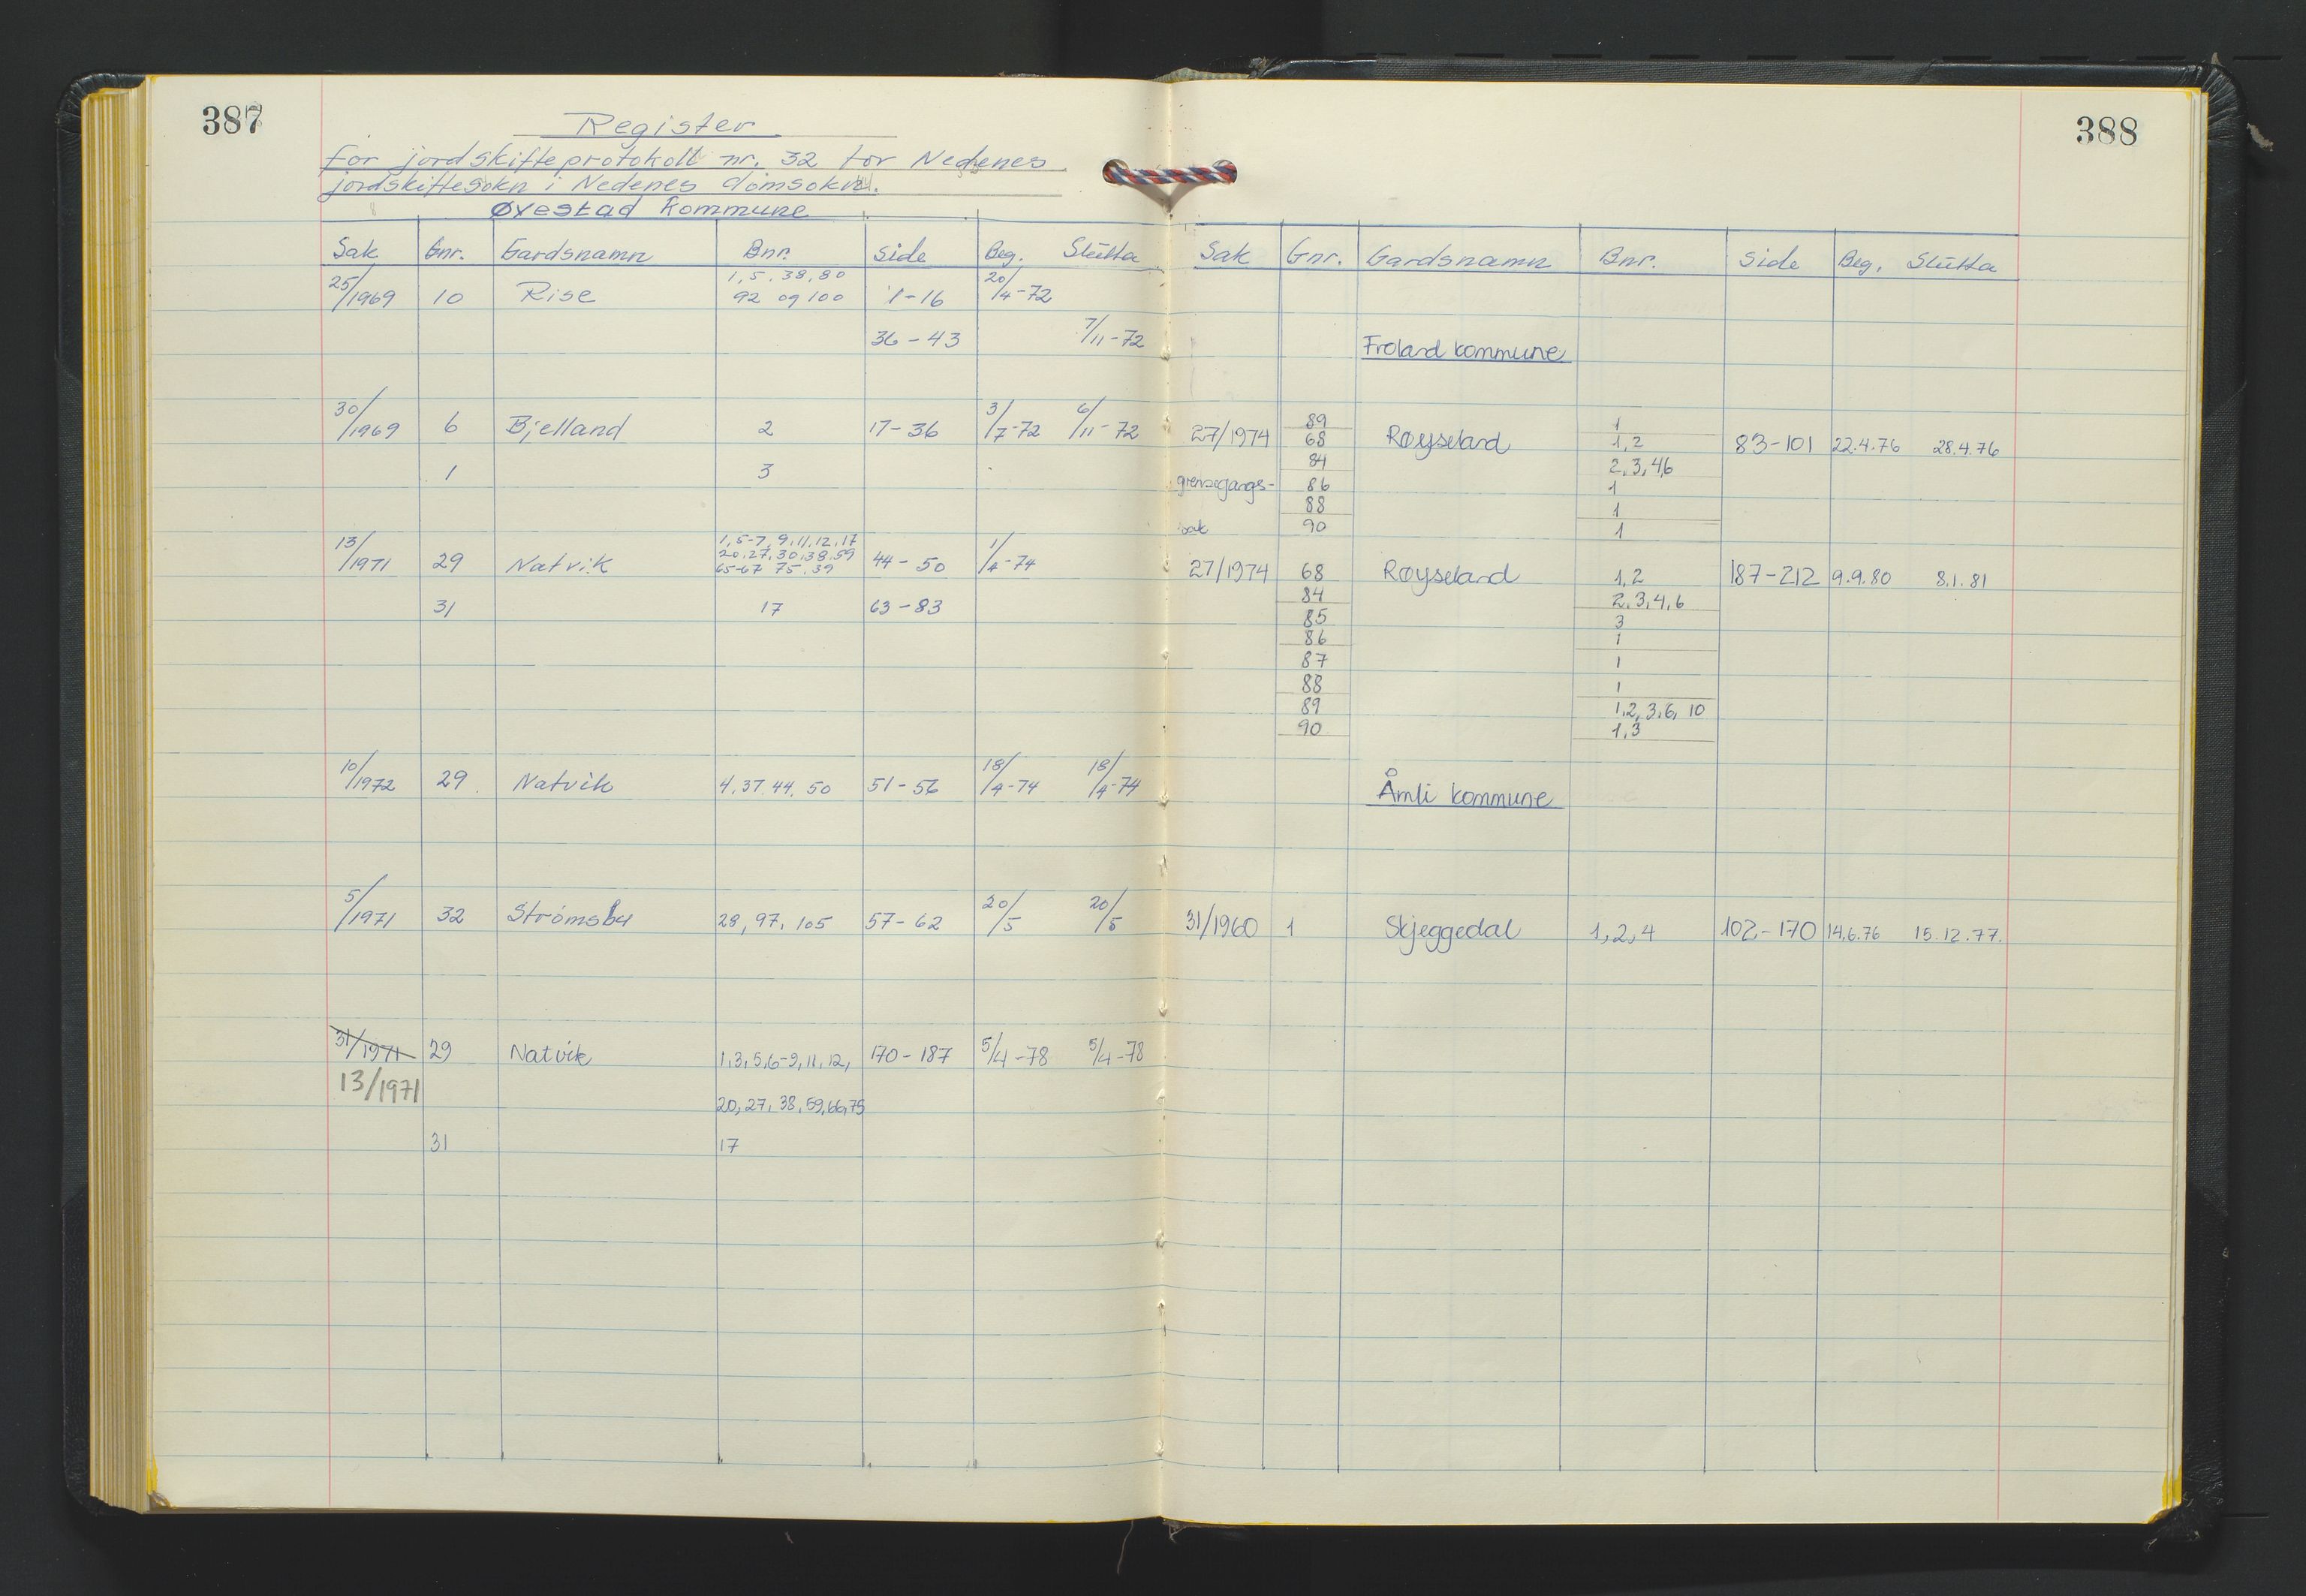 387
Register
for jordskifteprotokoll nr. 32 for Nedenes
jordskiftesokn i Nedenes domsokn.
Øyestad kommune
Sak Gnr. Gardsnamn Bnr. Side Beg. Slutta
25/1969 10 Rise 1, 5, 38, 80 92 og 100 1-16 20/4-72
36-43 7/11-72
30/1969 6 Bjelland 2 17-36 3/7-72 6/11-72
1 3
13/1971 29 Natvik 1, 5-7, 9, 11, 12, 17 20, 27, 30, 38, 59 65-67 75, 39 44-50 1/4-74
31 17 63-83
10/1972 29 Natvik 4, 37, 44, 50 51-56 18/4-74 18/4-74
5/1971 32 Strømsbu 28, 97, 105 57-62 20/5 20/5
31/1971 29 Natvik 1, 3, 5, 6-9, 11, 12, 170-187 5/4-78 5/4-78
13/1971
20, 27, 38, 59, 66, 75
31 17
388
Sak Gnr. Gardsnamn Bnr. Side Beg. Slutta
Froland kommune
89 1
27/1974 68 Røyseland 1, 2 83-101 22.4.76 28.4.76
84 2, 3, 4, 6
grensegangs- 86 1
88 1
sak 90 1
27/1974 68 Røyseland 1, 2 187-212 9.9.80 8.1.81
84 2, 3, 4, 6
85 3
86 1
87 1
88 1
89 1, 2, 3, 6, 10
90 1, 3
Åmli kommune
31/1960 1 Skjeggedal 1, 2, 4 102-170 14.6.76 15.12.77.